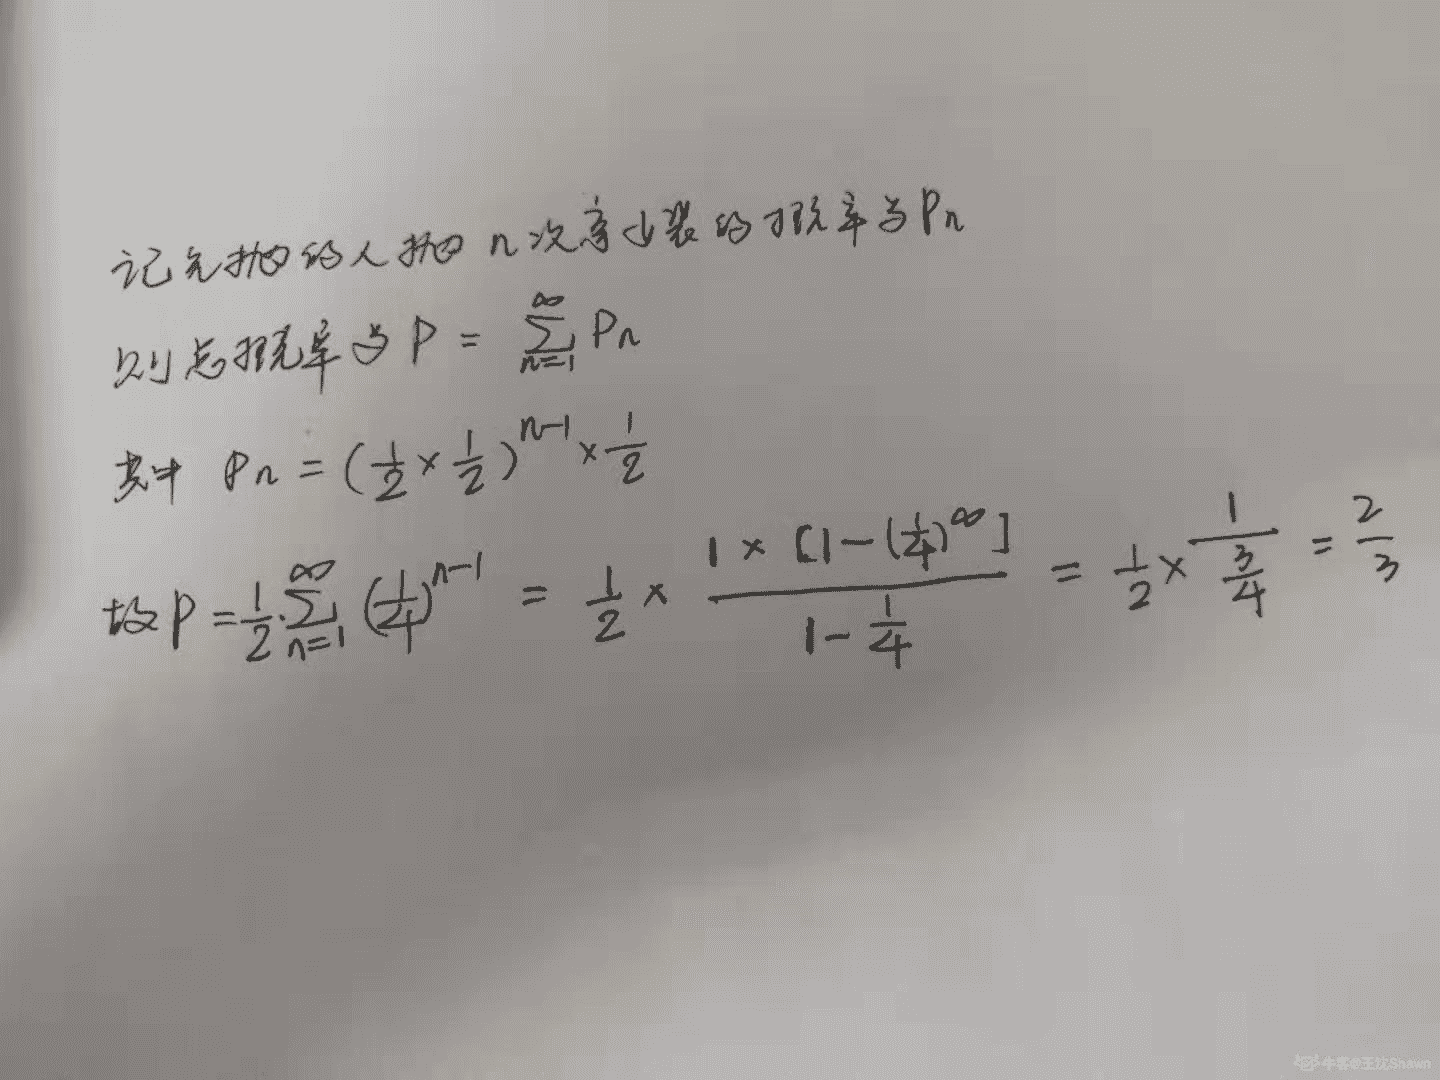 记先抛的人抛 n 次拿山裴的概率为 Pn
则总概率为 P = ∑_{n=1}^{∞} Pn
其中 Pn = (1/2 × 1/2)^{n-1} × 1/2
故 P = 1/2 · ∑_{n=1}^{∞} (1/4)^{n-1} = 1/2 × (1 × [1 - (1/4)^∞])/(1 - 1/4) = 1/2 × 1/(3/4) = 2/3
牛客@王沈Shawn